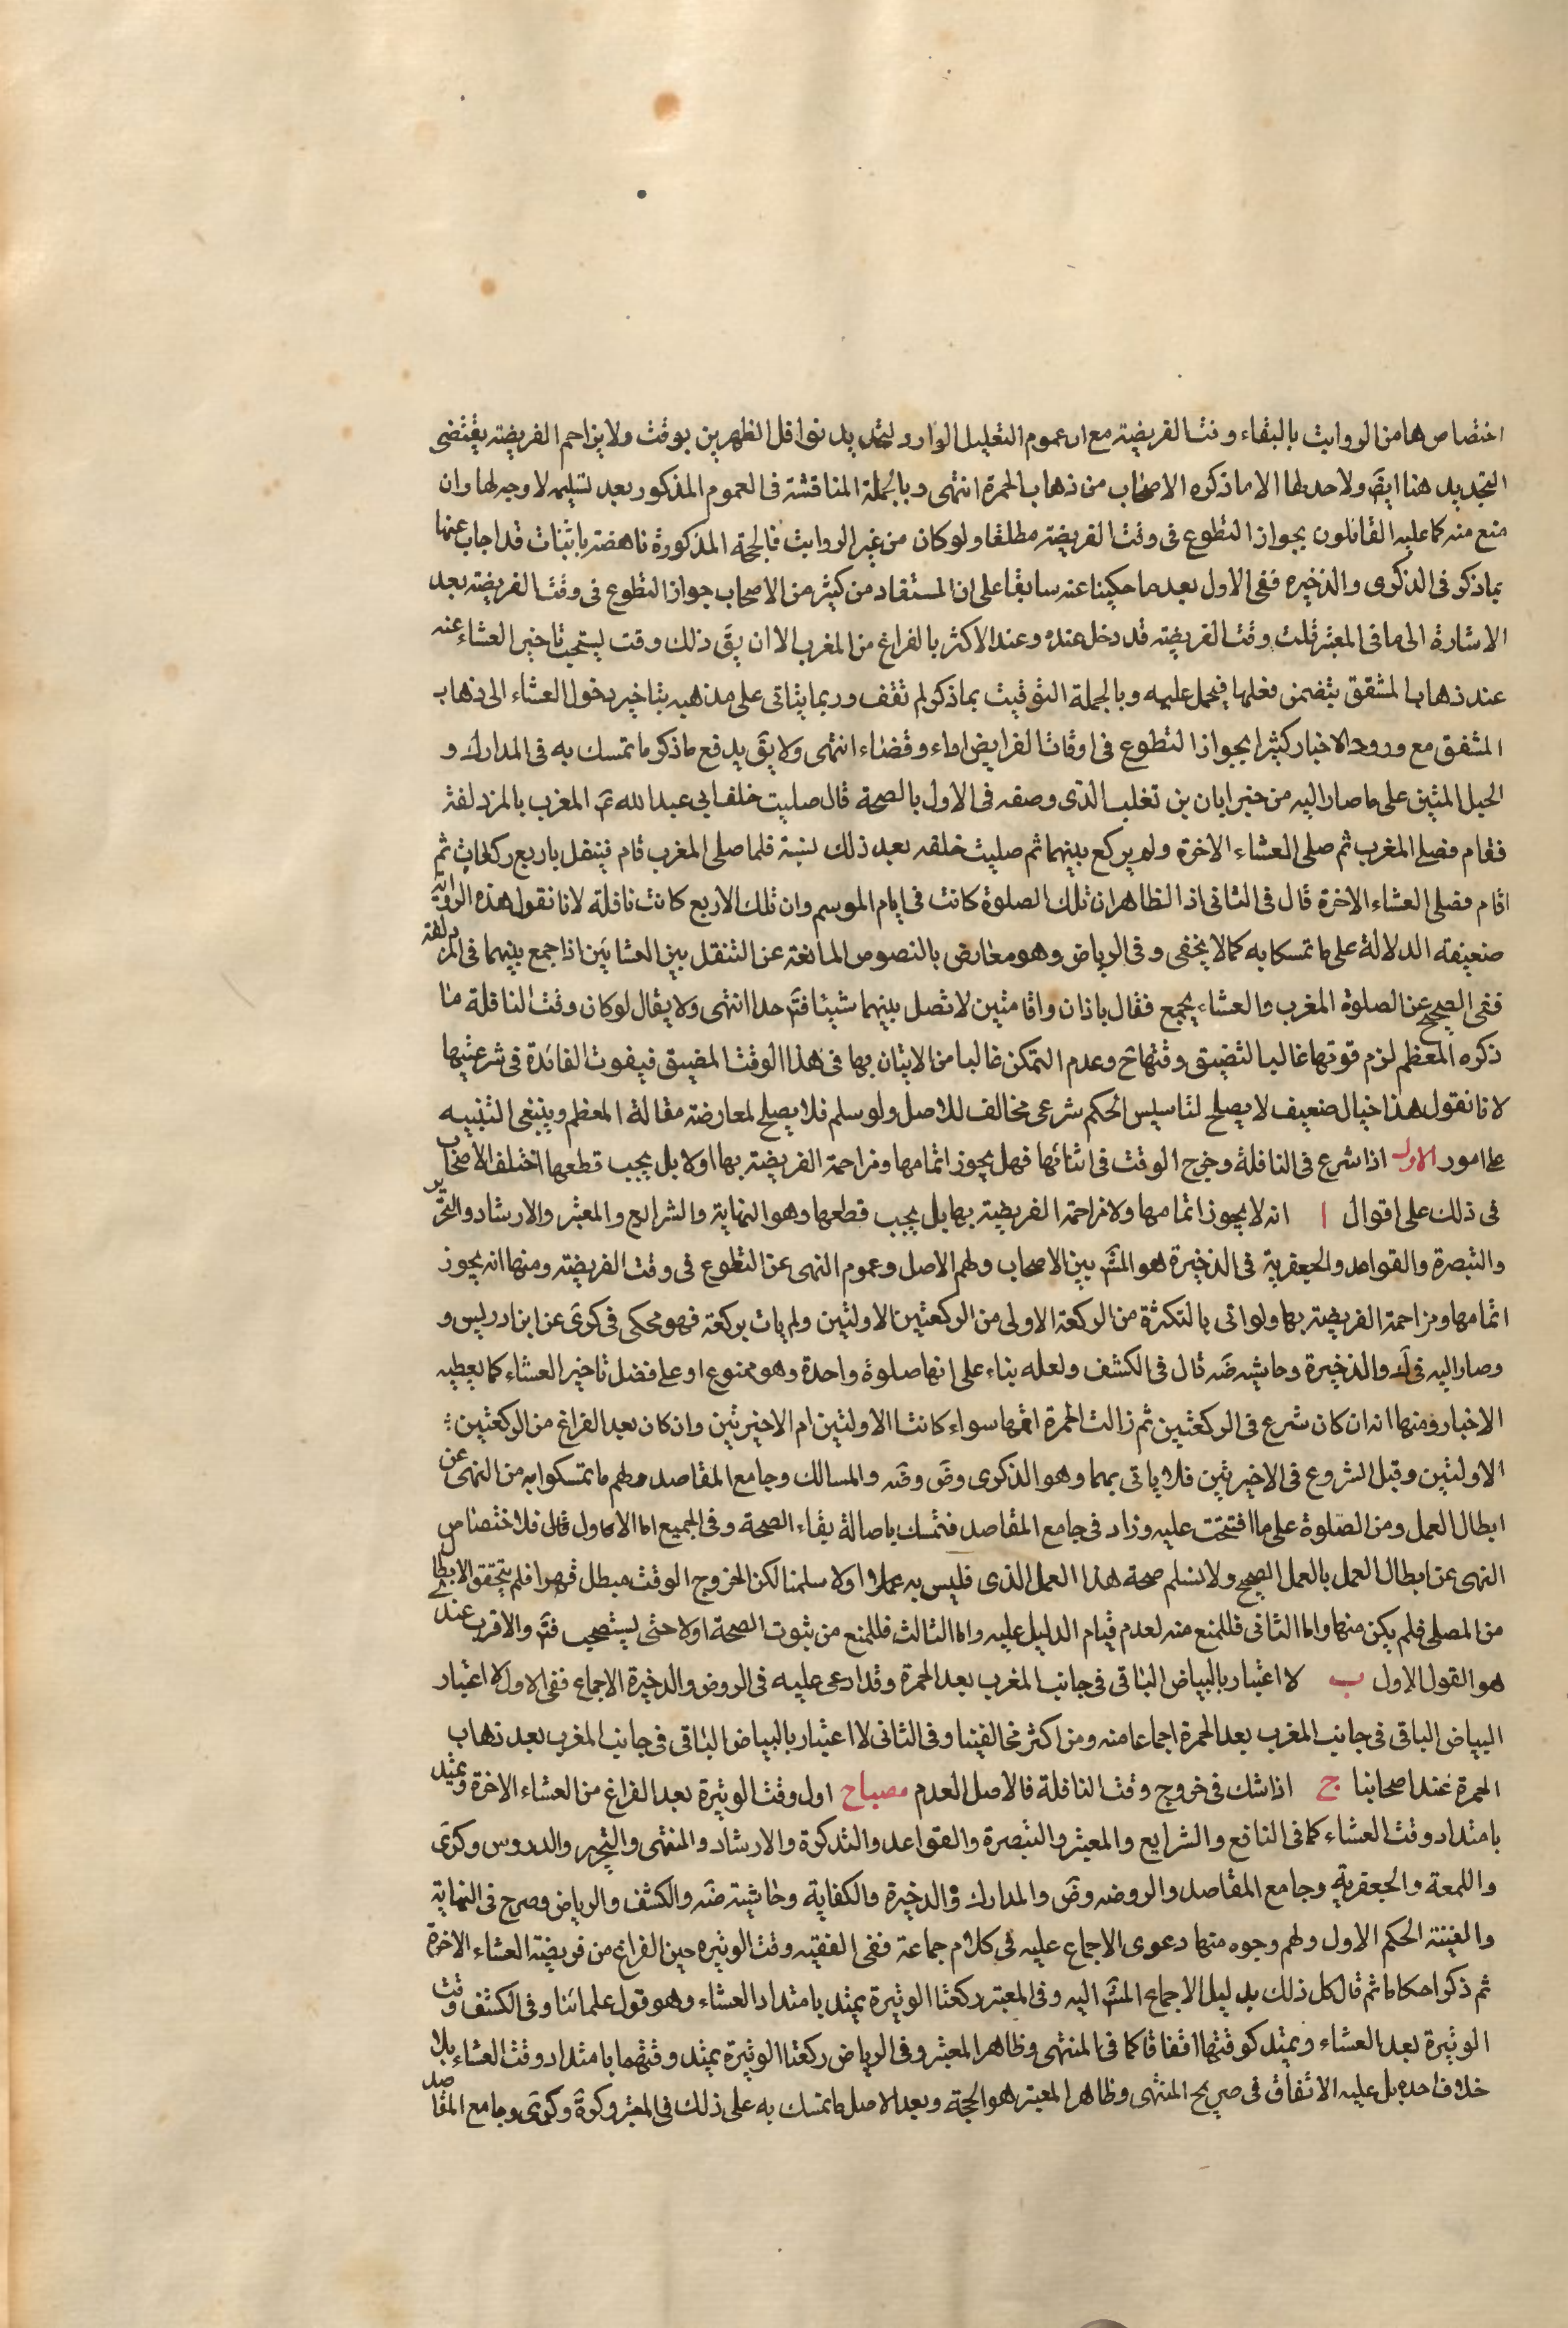 اختصاصها من الرواتب بالبقاء وقت الفريضة مع ان عموم التعليل الوارد لتحديد نوافل الظهرين بوقت ولا يزاحم الفريضة يقتضى
التحديد هنا ايضَ ولا حد لها الا ما ذكره الاصحاب من ذهاب الحمرة انتهى وبالجملة المناقشة فى العموم المذكور بعد تسليمه لا وجه لها وان
منع منه كما عليه القائلون بجواز التطوع فى وقت الفريضة مطلقا ولو كان من غير الرواتب فالحجة المذكورة ناهضة باثبات قد اجاب عنها
بما ذكر فى الذكرى والذخيره ففى الاول بعد ما حكينا عنه سابقا على ان المستفاد من كثير من الاصحاب جواز التطوع فى وقت الفريضة بعد
الاشارة الى ما فى المعتبر قلت وقت الفريضة قد دخل عنده وعند الاكثر بالفراغ من المغرب الا ان يقَ ذلك وقت يستحب تاخير العشاء عنه
عند ذهاب المشفق يتضمن فعلها فيحمل عليه وبالجملة التوقيت بما ذكر لم نقف وربما يتاتى على مذهبه بتاخير دخول العشاء الى ذهاب
المشفق مع ورود الاخبار كثيرا بجواز التطوع فى اوقات الفرايض اداء وقضاء انتهى ولا يقَ يدفع ما ذكر ما تمسك به فى المدارك و
الحبل المتين على ما صارا اليه من خبر ابان بن تغلب الذى وصفه فى الاول بالصحة قال صليت خلف ابى عبد الله عَ المغرب بالمزدلفة
فقام فصلى المغرب ثم صلى العشاء الاخرة ولم يركع بينهما ثم صليت خلفه بعد ذلك بسنة فلما صلى المغرب قام فتنفل باربع ركعات ثم
اقام فصلى العشاء الاخرة قال فى الثانى اذ الظاهر ان تلك الصلوة كانت فى ايام الموسم وان تلك الاربع كانت نافلة لانا نقول هذه الرواية
ضعيفة الدلالة على ما تمسكا به كما لا يخفى وفى الرياض وهو معارض بالنصوص المانعة عن التنفل بين العشائين اذا جمع بينهما فى المزدلفة
ففى الصحيح عن الصلوة المغرب والعشاء بجمع فقال باذان واقامتين لا تصل بينهما شيئا فتَ جدا انتهى ولا يقال لو كان وقت النافلة ما
ذكره المعظم لزم فوتها غالبا لتضيق وقتها حَ وعدم التمكن غالبا من الاتيان بها فى هذا الوقت المضيق فيفوت الفائدة فى شرعيتها
لانا نقول هذا خيال ضعيف لا يصلح لتاسيس الحكم شرعى مخالف للاصل ولو سلم فلا يصلح لمعارضة مقالة المعظم وينبغى التنبيه
على امور الاول اذا شرع فى النافلة وخرج الوقت فى اثنائها فهل يجوز اتمامها ومزاحمة الفريضة بها اولا بل يجب قطعها اختلف الاصحاب
فى ذلك على اقوال ا انه لا يجوز اتمامها ولا مزاحمة الفريضة بها بل يجب قطعها وهو النهاية والشرايع والمعتبر والارشاد والتحرير
والتبصرة والقواعد والجعفرية فى الذخيرة هو المشَ بين الاصحاب ولهم الاصل وعموم النهى عن التطوع فى وقت الفريضة ومنها انه يجوز
اتمامها ومزاحمة الفريضة بها ولو اتى بالتكثرة من الركعة الاولى من الركعتين الاولتين ولم يات بركعة فهو محكى فى كرى عن ابن ادريس و
وصار اليه فى ك والذخيرة وحاشيه ضَه قال فى الكشف ولعله بناء على انها صلوة واحدة وهو ممنوع او على فضل تاخير العشاء كما يعطيه
الاخبار ومنها انه ان كان شرع فى الركعتين ثم زالت الحمرة اتمها سواء كانتا الاولتين ام الاخيرتين وان كان بعد الفراغ من الركعتين
الاولتين وقبل الشروع فى الاخيرتين فلا ياتى بهما وهو الذكرى وضَ وضَه والمسالك وجامع المقاصد ولهم ما تمسكوا به من النهى عن
ابطال العمل ومن الصلوة على ما افتتحت عليه وزاد فى جامع المقاصد فتمسك باصالة بقاء الصحة وفى الجميع اما الاول فلاختصاص
النهى عن ابطال العمل بالعمل الصحيح ولا نسلم صحة هذا العمل الذى فليس به عملا اولا سلمنا لكن الخروج الوقت مبطل قهرا فلم يتحقق الابطال
من المصلى فلم يكن منها واما الثانى فللمنع منه لعدم قيام الدليل عليه واما الثالث فللمنع من ثبوت الصحة اولا حتى يستصحب فتَ والاقرب عندى
هو القول الاول ب لا اعتبار بالبياض الباقى فى جانب المغرب بعد الحمرة وقد ادعى عليه فى الروض والذخيرة الاجماع ففى الاول لا اعتبار
البياض الباقى فى جانب المغرب بعد الحمرة اجماعا منه ومن اكثر مخالفينا وفى الثانى لا اعتبار بالبياض الباقى فى جانب المغرب بعد ذهاب
الحمرة عند اصحابنا ج اذا شك فى خروج وقت النافلة فالاصل العدم مصباح اول وقت الوتيرة بعد الفراغ من العشاء الاخرة ويمتد
بامتداد وقت العشاء كما فى النافع والشرايع والمعتبر والتبصرة والقواعد والتذكرة والارشاد والمنتهى والتحرير والدروس وكرى
واللمعة والجعفرية وجامع المقاصد والروضه وضَ والمدارك والذخيرة والكفاية وحاشية ضَه والكشف والرياض وصرح فى النهاية
والغنية الحكم الاول ولهم وجوه منها دعوى الاجماع عليه فى كلام جماعة ففى الغنية وقت الوتيره حين الفراغ من فريضة العشاء الاخرة
ثم ذكر احكاما ثم قال كل ذلك بدليل الاجماع المشَ اليه وفى المعتبر ركعتا الوتيرة يمتد بامتداد العشاء وهو قول علمائنا وفى الكشف وقت
الوتيرة بعد العشاء ويمتد كوقتها اتفاقا كما فى المنتهى وظاهر المعتبر وفى الرياض ركعتا الوتيرة يمتد وقتهما بامتداد وقت العشاء بلا
خلاف اجده بل عليه الاتفاق فى صريح المنتهى وظاهر المعتبر هو الحجة وبعد الاصل ما تمسك به على ذلك فى المعتبر وكرة وكرى وجامع المقاصد